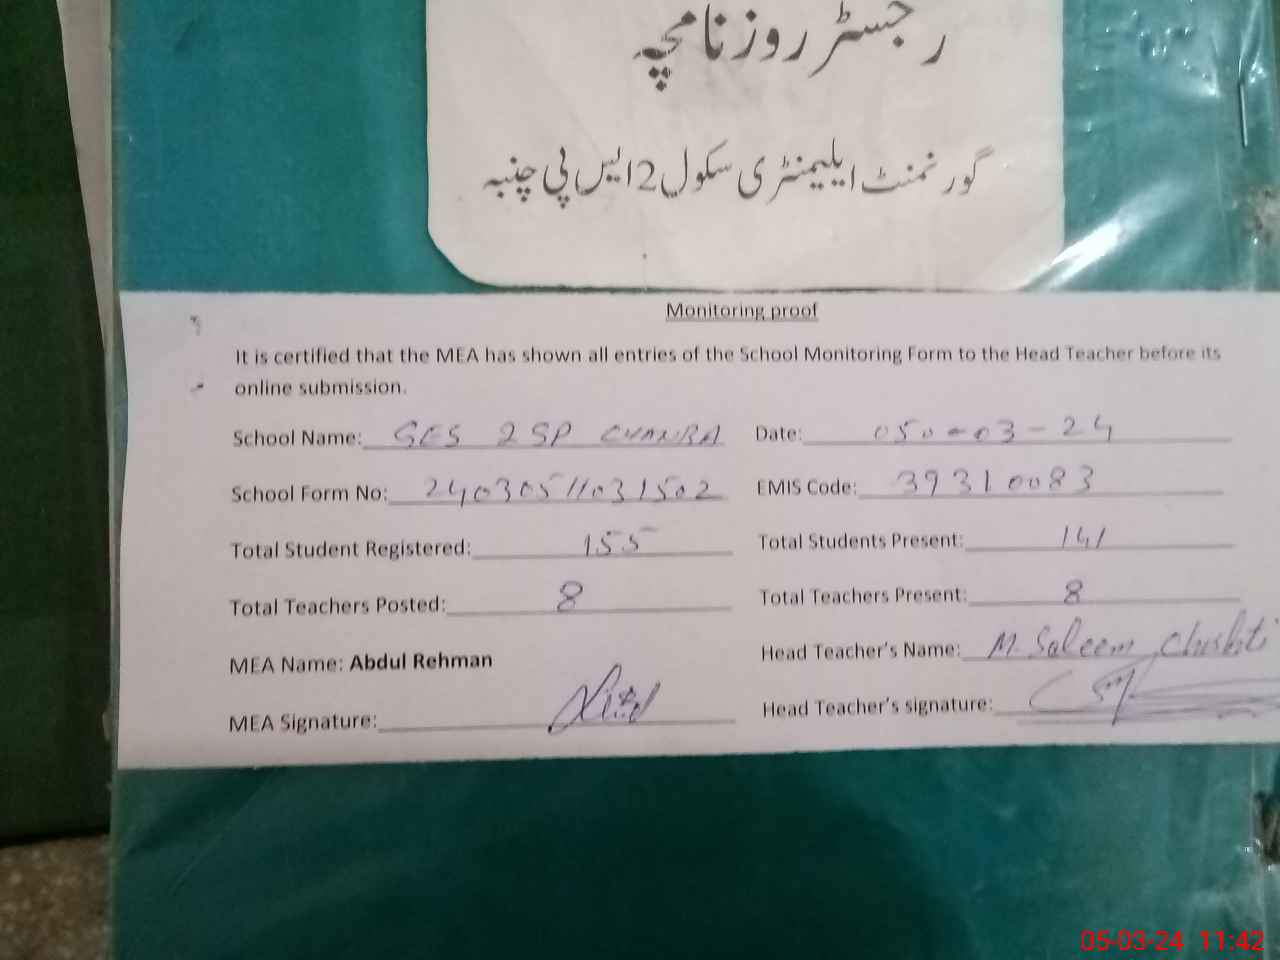 رجسٹر روزنامچہ
گورنمنٹ ایلیمنٹری سکول 2 ایس پی چنبہ
Monitoring proof
It is certified that the MEA has shown all entries of the School Monitoring Form to the Head Teacher before its
online submission.
School Name: GES 2 SP CHANBA Date: 050-03-24
School Form No: 24030511031502 EMIS Code: 39310083
Total Student Registered: 155 Total Students Present: 141
Total Teachers Posted: 8 Total Teachers Present: 8
MEA Name: Abdul Rehman Head Teacher's Name: M. Saleem Chishti
MEA Signature: Head Teacher's signature:
05-03-24 11:42